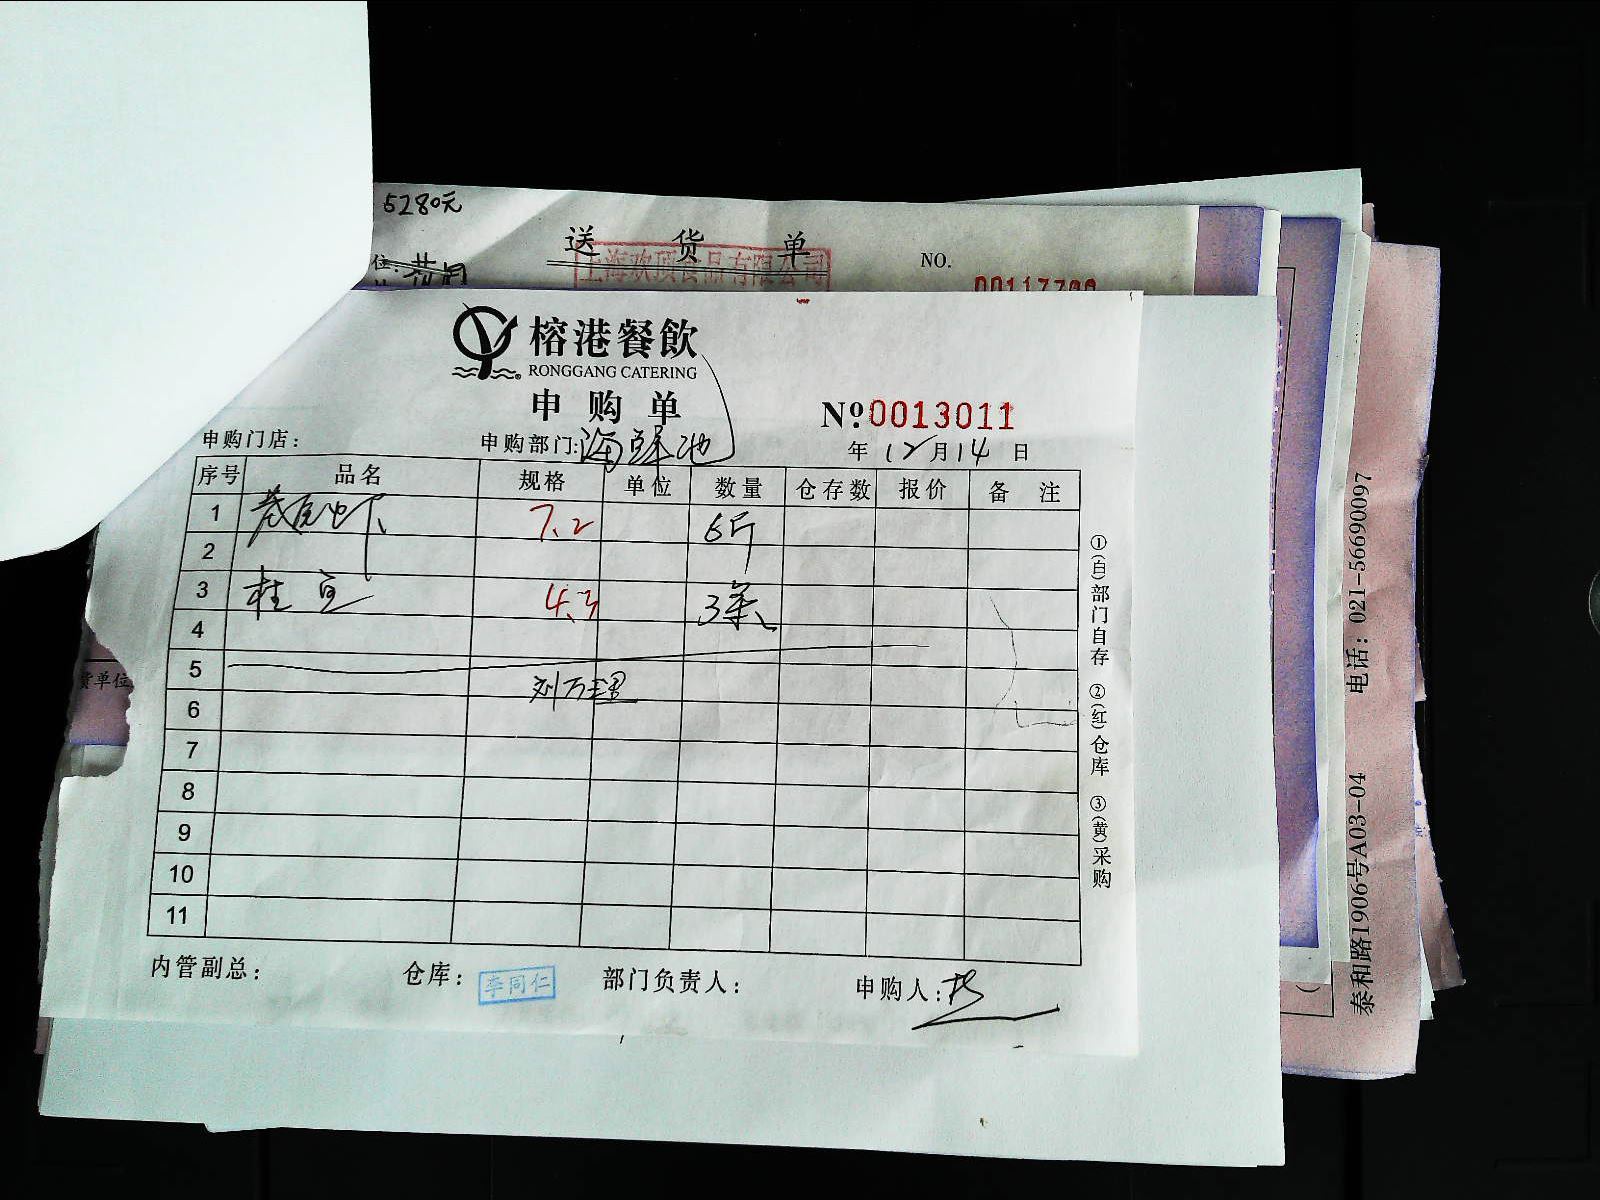 5280元
送 货 单
上海欢顶食品有限公司
NO.
位:
榕港餐飲
RONGGANG CATERING
申 购 单
Nº:0013011
申购门店: 申购部门:海鲜池 年 12月14 日
序号 品名 规格 单位 数量 仓存数 报价 备 注
1 7.2 6斤
2
3 桂鱼 4.3 3条
4
5
刘万理
6
7
8
9
10
11
内管副总: 仓库: 李同仁 部门负责人: 申购人:
①(白)部门自存 ②(红)仓库 ③(黄)采购
货单位
泰和路1906号A03-04 电话：021-56690097